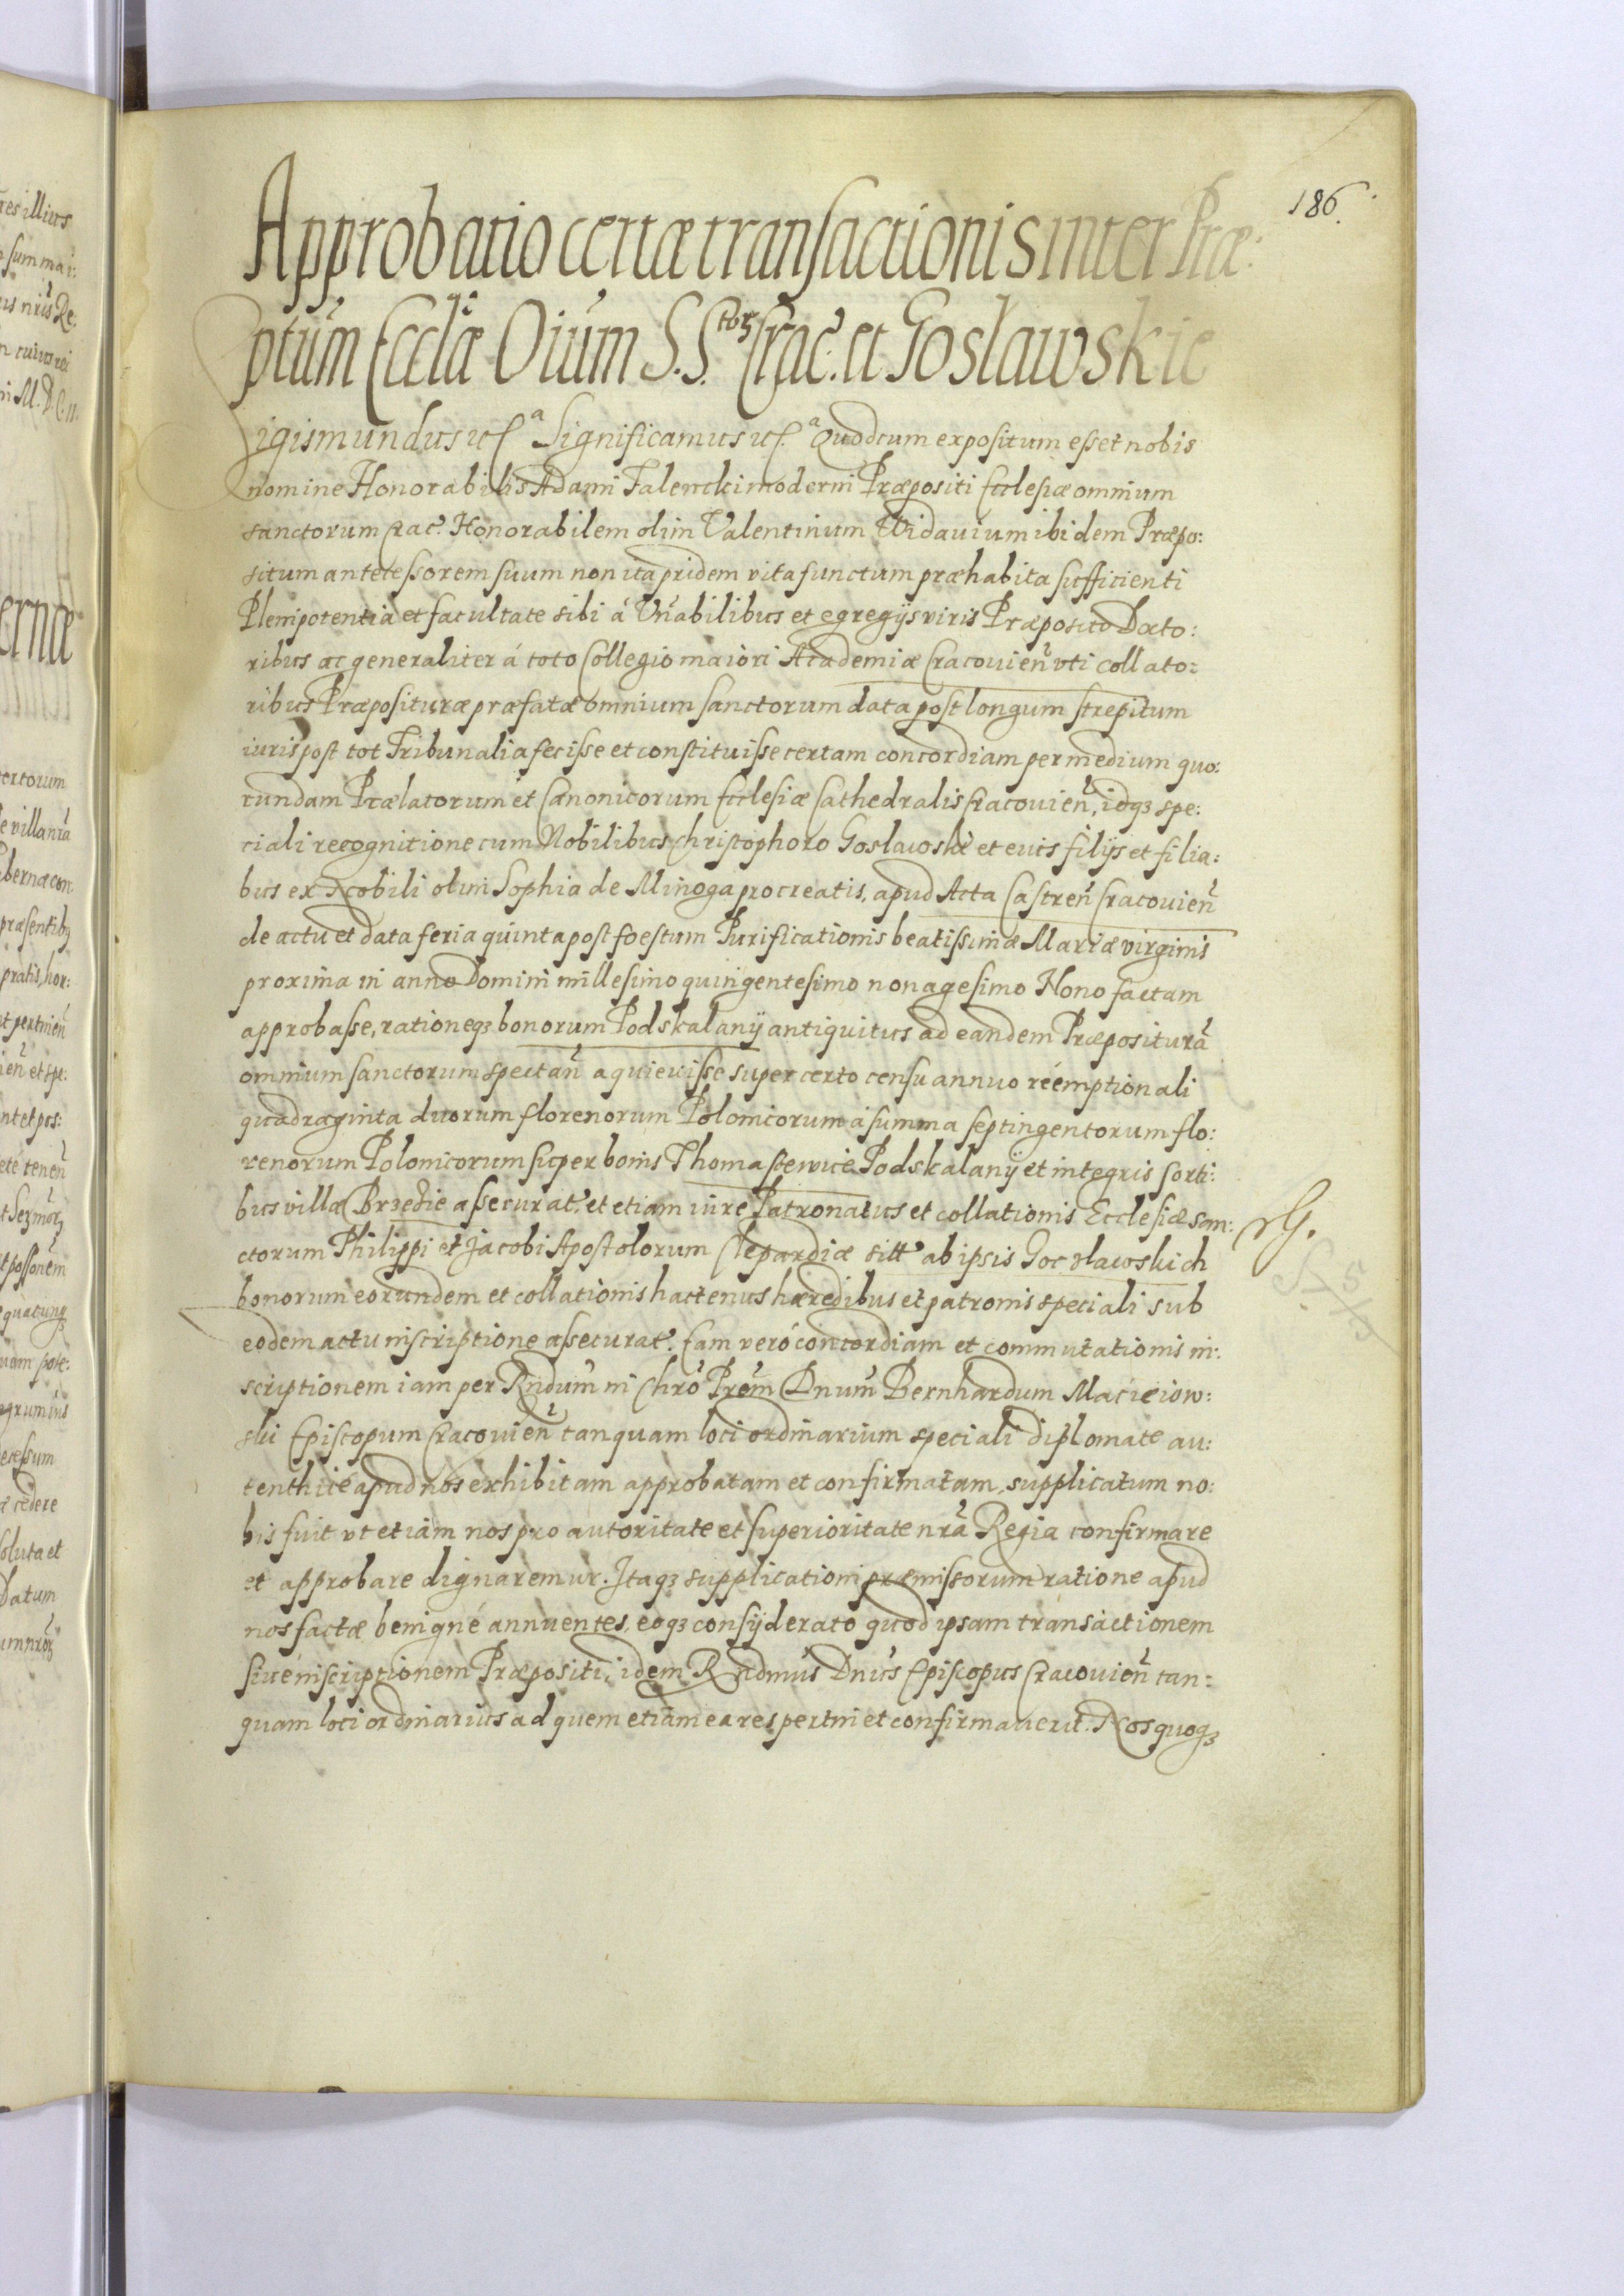 186.
Approbatio certæ transactionis inter Præ:
ptúm Ecclæ Oiúm S.S.torꝫ Crac. et Gosławskie
Sigismundus etc.a Significamus etc.a Quod cum expositum esset nobis
nomine Honorabilis Adami Falencki moderni Præpositi Ecclesiæ omnium
sanctorum Crac. Honorabilem olim Valentinum Widauium ibidem Præpo:
situm antecessorem suum non ita pridem vita functum præhabita sufficienti
Plenipotentia et facultate sibi á Vnabilibus et egregijs viris Præposito Docto:
ribus ac generaliter á toto Collegio maiori Academiæ Cracouien vti collato:
ribus Præposituræ præfatæ omnium sanctorum data post longum strepitum
iuris post tot Tribunalia fecisse et constituisse certam concordiam per medium quo:
rundam Prælatorum et Canonicorum Ecclesiæ Cathedralis Cracouien, idqꝫ spe:
ciali recognitione cum Nobilibus Christophoro Goslawski et euis filijs et filia:
bus ex Nobili olim Sophia de Minoga procreatis, apud Acta Castren Cracouien
de actu et data feria quinta post foestum Purificationis beatissimæ Mariæ virginis
proxima in anno Domini millesimo quingentesimo nonagesimo Nono factam
approbasse, rationeqꝫ bonorum Podskalany antiquitus ad eandem Præpositurã
omnium sanctorum spectan aquieuisse super certo censu annuo réemptionali
quadraginta duorum florenorum Polonicorum á summa septingentorum flo:
renorum Polonicorum super bonis Thomaszewice Podskalany et integris sorti:
bus villæ Brzezie assecurat, et etiam iure Patronatus et collationis Ecclesiæ san:
ctorum Philippi et Jacobi Apostolorum Clepardiæ sitt ab ipsis Goczlawskich
bonorum eorundem et collationis hactenus hæredibus et patronis speciali sub
eodem actu inscriptione assecurat. Eam veró concordiam et commutationis in:
scriptionem iam per Rndum in Chro Prem Dnum Bernhardum Macieiow:
ski Episcopum Cracouien tanquam loci ordinarium speciali diplomate au:
tenthicé apud nos exhibitam approbatam et confirmatam, supplicatum no:
bis fuit vt etiam nos pro autoritate et superioritate nrã Regia confirmare
et approbare dignaremur. Itaqꝫ supplicationi præmissorum ratione apud
nos factæ benigné annuentes, eoqꝫ consyderato quod ipsam transactionem
siué inscriptionem Præpositi, idem Rndmus Dnus Episcopus Cracouien tan:
quam loci ordinarius ad quem etiam ea res pertinet confirmauerit. Nos quoqꝫ